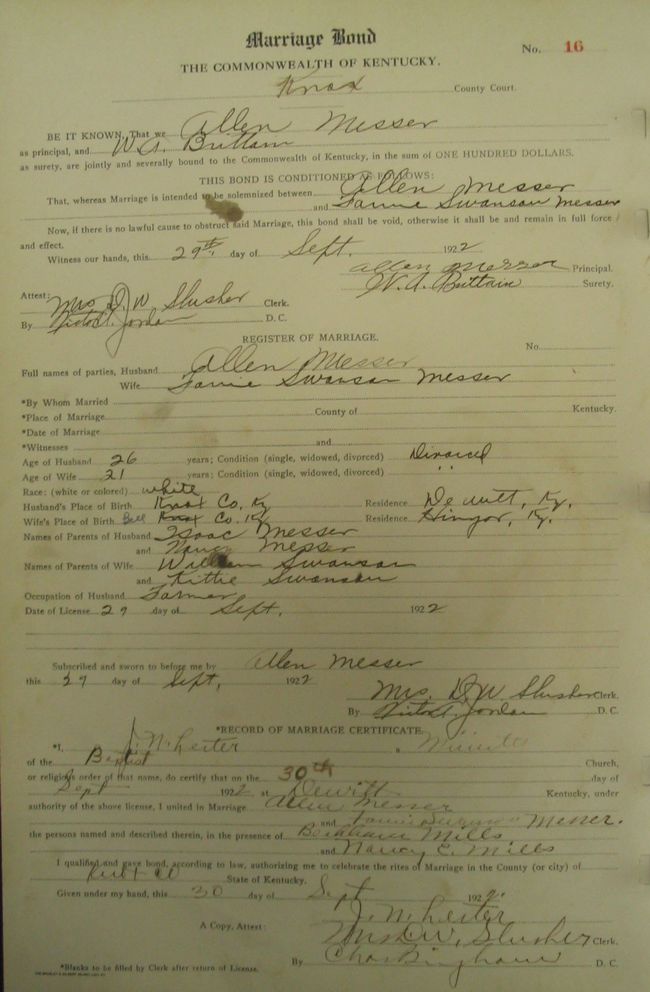 Marriage Bond
No. 16
THE COMMONWEALTH OF KENTUCKY.
Knox County Court.
BE IT KNOWN, That we Allen Messer
as principal, and W. A. Brittain
as surety, are jointly and severally bound to the Commonwealth of Kentucky, in the sum of ONE HUNDRED DOLLARS.
THIS BOND IS CONDITIONED AS FOLLOWS:
That, whereas Marriage is intended to be solemnized between Allen Messer
and Fannie Swanson Messer
Now, if there is no lawful cause to obstruct said Marriage, this bond shall be void, otherwise it shall be and remain in full force
and effect.
Witness our hands, this 29th day of Sept. 1922
Allen Messer Principal.
W. A. Brittain Surety.
Attest:
Mrs. D. W. Slusher Clerk.
By Jordan D. C.
REGISTER OF MARRIAGE.
No.
Full names of parties, Husband Allen Messer
Wife Fannie Swanson Messer
*By Whom Married
*Place of Marriage County of Kentucky.
*Date of Marriage
*Witnesses and
Age of Husband 26 years; Condition (single, widowed, divorced) Divorced
Age of Wife 21 years; Condition (single, widowed, divorced) " "
Race: (white or colored) white
Husband's Place of Birth Knox Co. Ky Residence Dewitt, Ky.
Wife's Place of Birth Bell Knox Co. Ky Residence Ky.
Names of Parents of Husband Isaac Messer
and Nancy Messer
Names of Parents of Wife William Swanson
and Kittie Swanson
Occupation of Husband Farmer
Date of License 29 day of Sept. 1922
Subscribed and sworn to before me by Allen Messer
this 29 day of Sept, 1922
Mrs. D. W. Slusher Clerk.
By Jordan D. C.
*RECORD OF MARRIAGE CERTIFICATE.
*I, J. N. Lester a Minister
of the Baptist Church,
or religious order of that name, do certify that on the 30th day of
Sept 1922 at Dewitt Kentucky, under
authority of the above license, I united in Marriage Allen Messer
and Messer.
the persons named and described therein, in the presence of Mills
and Nancy E. Mills
I qualified and gave bond, according to law, authorizing me to celebrate the rites of Marriage in the County (or city) of
Knox Co State of Kentucky.
Given under my hand, this 30 day of Sept 1922.
J. N. Lester
A Copy, Attest: Mrs. D. W. Slusher Clerk.
By Chas Bingham D. C.
*Blanks to be filled by Clerk after return of License.